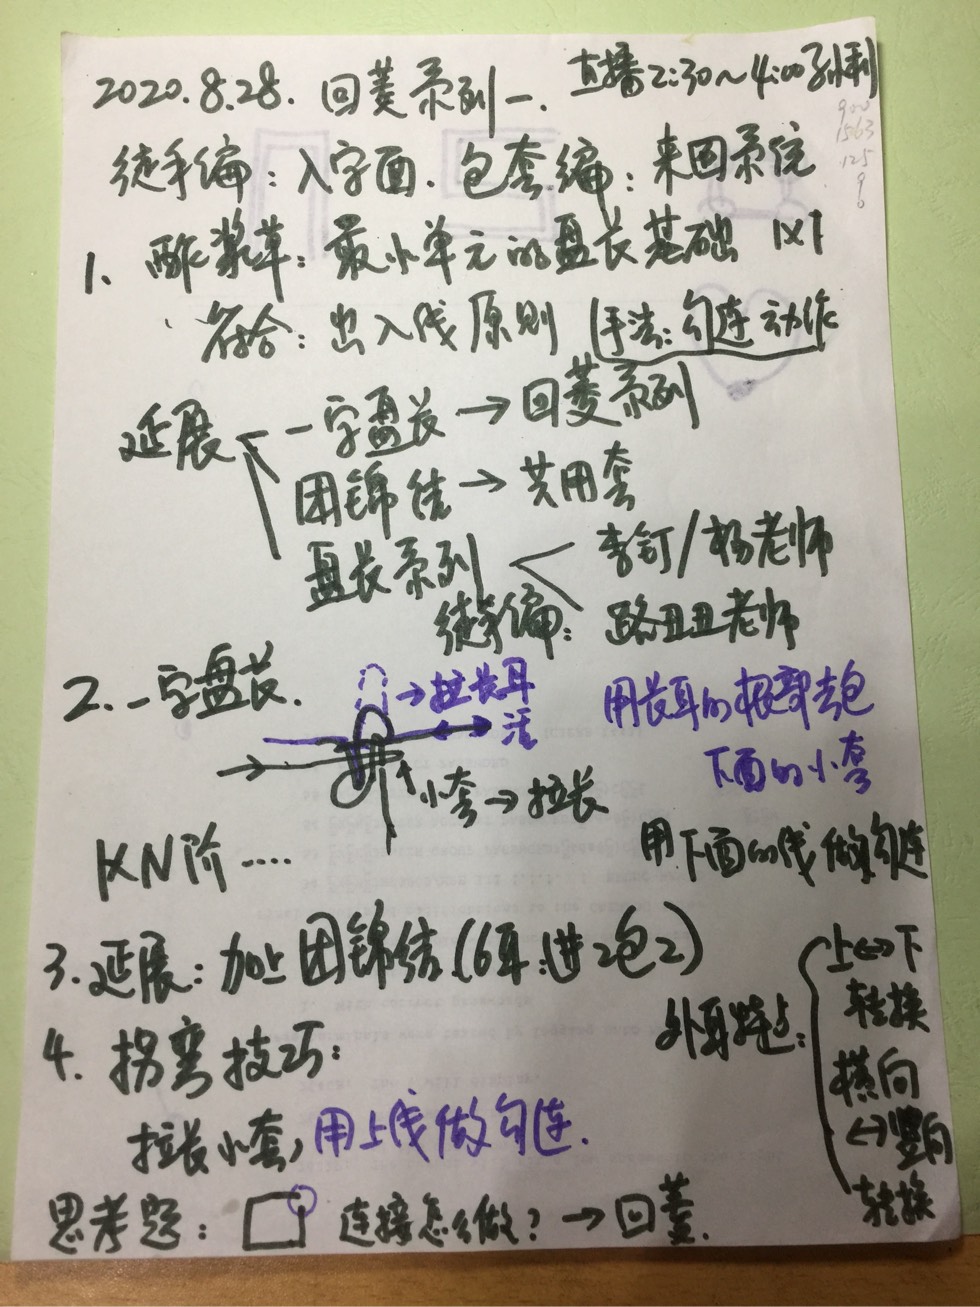 2020.8.28. 回菱系列一. 直播2:30~4:00
徒手编:入字面. 包套编:来回系统
1. 酢浆草:最小单元的盘长基础 1×1
符合:出入线原则 (手法:勾连动作
延展 一字盘长→回菱系列
团锦结→共用套
盘长系列 李钉/杨老师
徒手编: 路丑丑老师
2. 一字盘长.
→拉长耳
活
小套→拉长
用长耳的根部去包
下面的小套
用下面的线做勾连
1×N阶....
3. 延展:加上团锦结(6耳:进2包2)
外耳特点:
上↔下
转换
横向
↔竖向
转换
4. 拐弯技巧:
拉长小套,用上线做勾连.
思考题: 连接怎么做?→回菱.